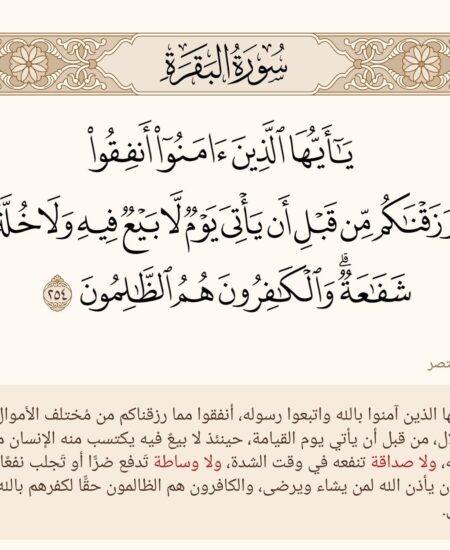 سُورَةُ البَقَرَةِ
يَٰٓأَيُّهَا ٱلَّذِينَ ءَامَنُوٓا۟ أَنفِقُوا۟
رَزَقْنَٰكُم مِّن قَبْلِ أَن يَأْتِىَ يَوْمٌ لَّا بَيْعٌ فِيهِ وَلَا خُلَّةٌ
شَفَٰعَةٌ ۗ وَٱلْكَٰفِرُونَ هُمُ ٱلظَّٰلِمُونَ ٢٥٤
الذين آمنوا بالله واتبعوا رسوله، أنفقوا مما رزقناكم من مُختلف الأموال
من قبل أن يأتي يوم القيامة، حينئذ لا بيعَ فيه يكتسب منه الإنسان
ولا صداقة تنفعه في وقت الشدة، ولا وساطة تَدفع ضرًا أو تَجلب نفعًا
يأذن الله لمن يشاء ويرضى، والكافرون هم الظالمون حقًّا لكفرهم بالله